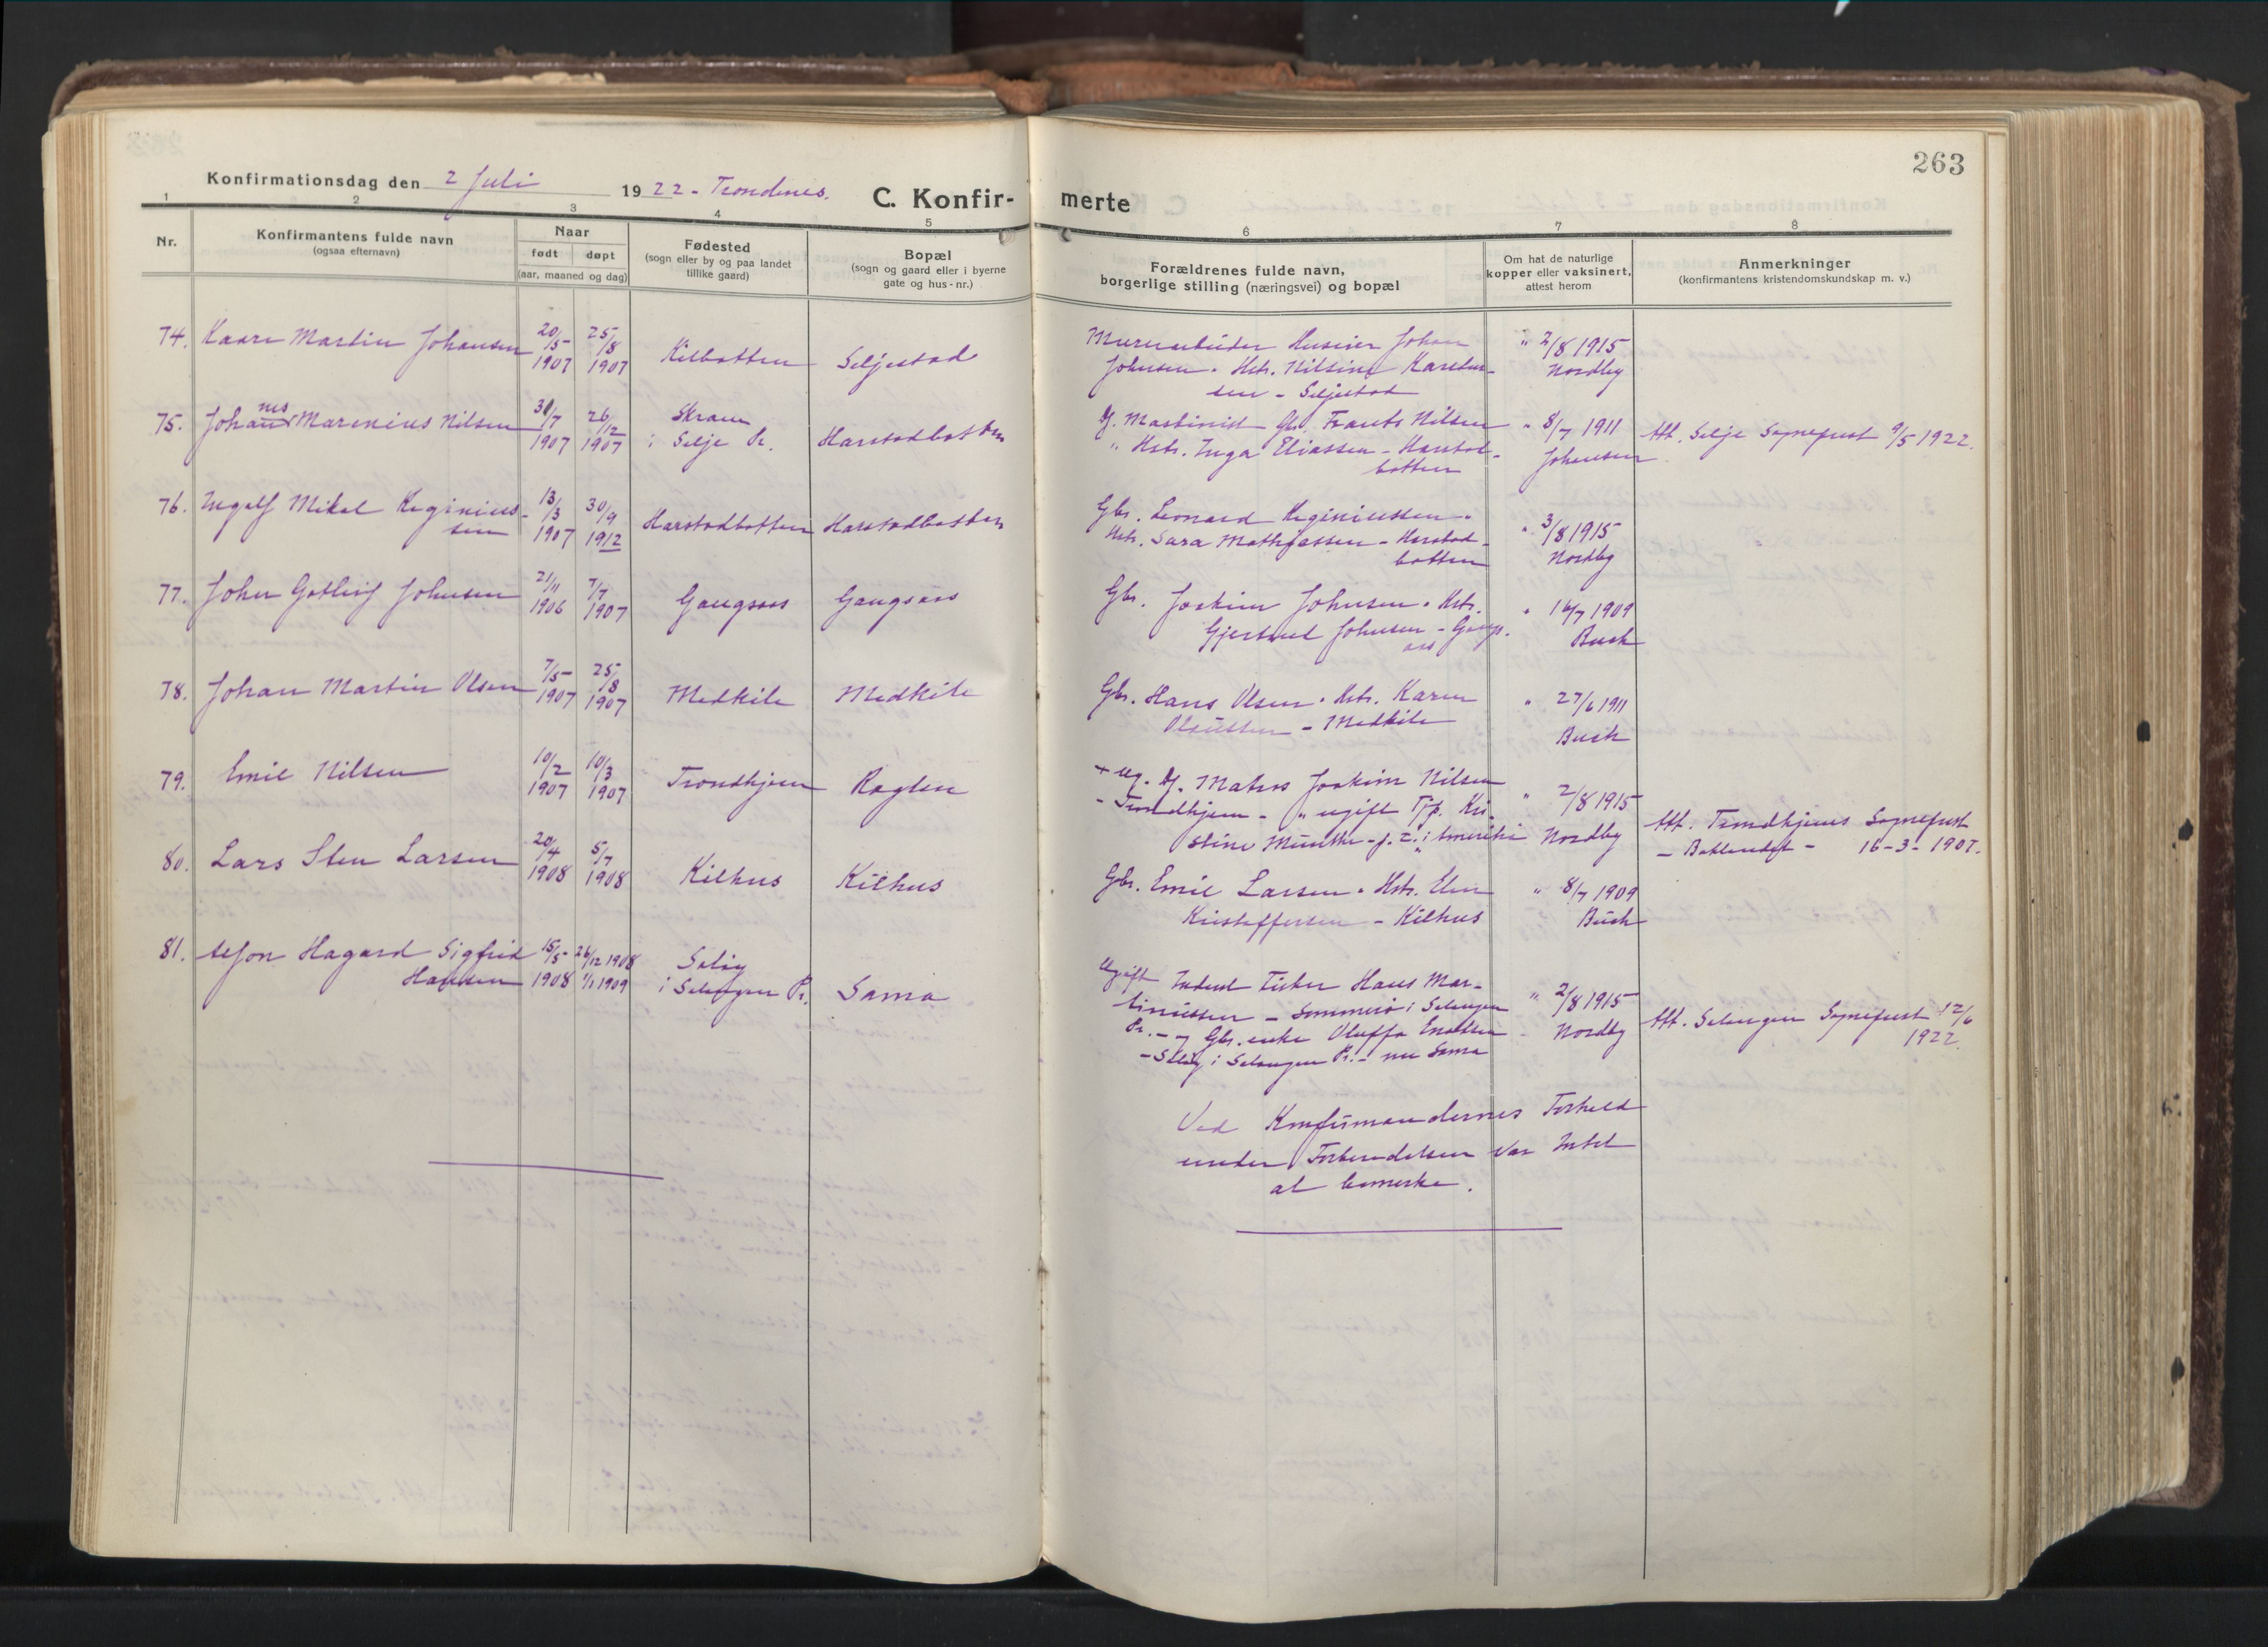 263
Konfirmationsdag den 2 Juli 1922 - Trondenes.
C. Konfir-
merte
1 2 3 4 5 6 7 8
Nr.
Konfirmantens fulde navn
(ogsaa efternavn)
Naar
født døpt
(aar, maaned og dag)
Fødested
(sogn eller by og paa landet
tillike gaard)
Bopæl
(sogn og gaard eller i byerne
gate og hus-nr.)
Forældrenes fulde navn,
borgerlige stilling (næringsvei) og bopæl
Om hat de naturlige
kopper eller vaksinert,
attest herom
Anmerkninger
(konfirmantens kristendomskundskap m. v.)
74. Kaare Martin Johansen 20/5 1907 25/8 1907 Kilbotten Seljestad
Johan
Johnsen. Hstr. Nilsine Karsten-
sen - Seljestad
" 2/8 1915
Nordby
75. Johannes Marenius Nilsen 31/7 1907 26/12 1907
i Selje Pr. Harstadbotten
Frants Nilsen
" Hstr. Inga Eliassen - Harstad-
botten
" 8/7 1911
Johansen
Att. Selje Sogneprest 9/5 1922.
76. Ingolf Mikal Reginius-
sen 13/3 1907 30/9 1912 Harstadbotten Harstadbotten
Gbr. Leonard Reginiussen.
Hstr. Sara Mathiassen - Harstad-
botten
" 3/8 1915
Nordby
77. Johan Gotlieb Johnsen 21/11 1906 7/7 1907 Gangsaas Gangsaas
Gbr. Joakim Johnsen. Hstr.
Gjertrud Johnsen - Gangs-
aas
" 16/7 1909
Buch
78. Johan Martin Olsen 7/5 1907 25/8 1907 Medkile Medkile
Gbr. Hans Olsen. Hstr. Karen
- Medkile
" 27/6 1911
Buch
79. Emil Nilsen 10/2 1907 10/3 1907 Trondhjem Røglen
Matros Joakim Nilsen
- Trondhjem - " ugift Tjp. Kri-
stine Munthe - p. t. i Amerika
" 2/8 1915
Nordby
Att. Trondhjems Sogneprest
- Baklandet - 16-3-1907.
80. Lars Sten Larsen 20/4 1908 5/7 1908 Kilhus Kilhus
Gbr. Emil Larsen. Hstr. Elen
Kristoffersen - Kilhus
" 8/7 1909
Buch
81. Hagard Sigfrid
Hansen 15/5 1908 26/12 1908 1/1 1909
i Salangen Pr. Sama
Ugift Fisker Hans Mar-
tinussen - Sommersø i Salangen
Pr. - og Gbr. enke Oluffa Enoksen
i Salangen Pr. - nu Sama
" 2/8 1915
Nordby
Att. Salangen Sogneprest 12/6
1922.
Ved Konfirmandernes Forhold
under Forberedelsen var Intet
at bemerke.